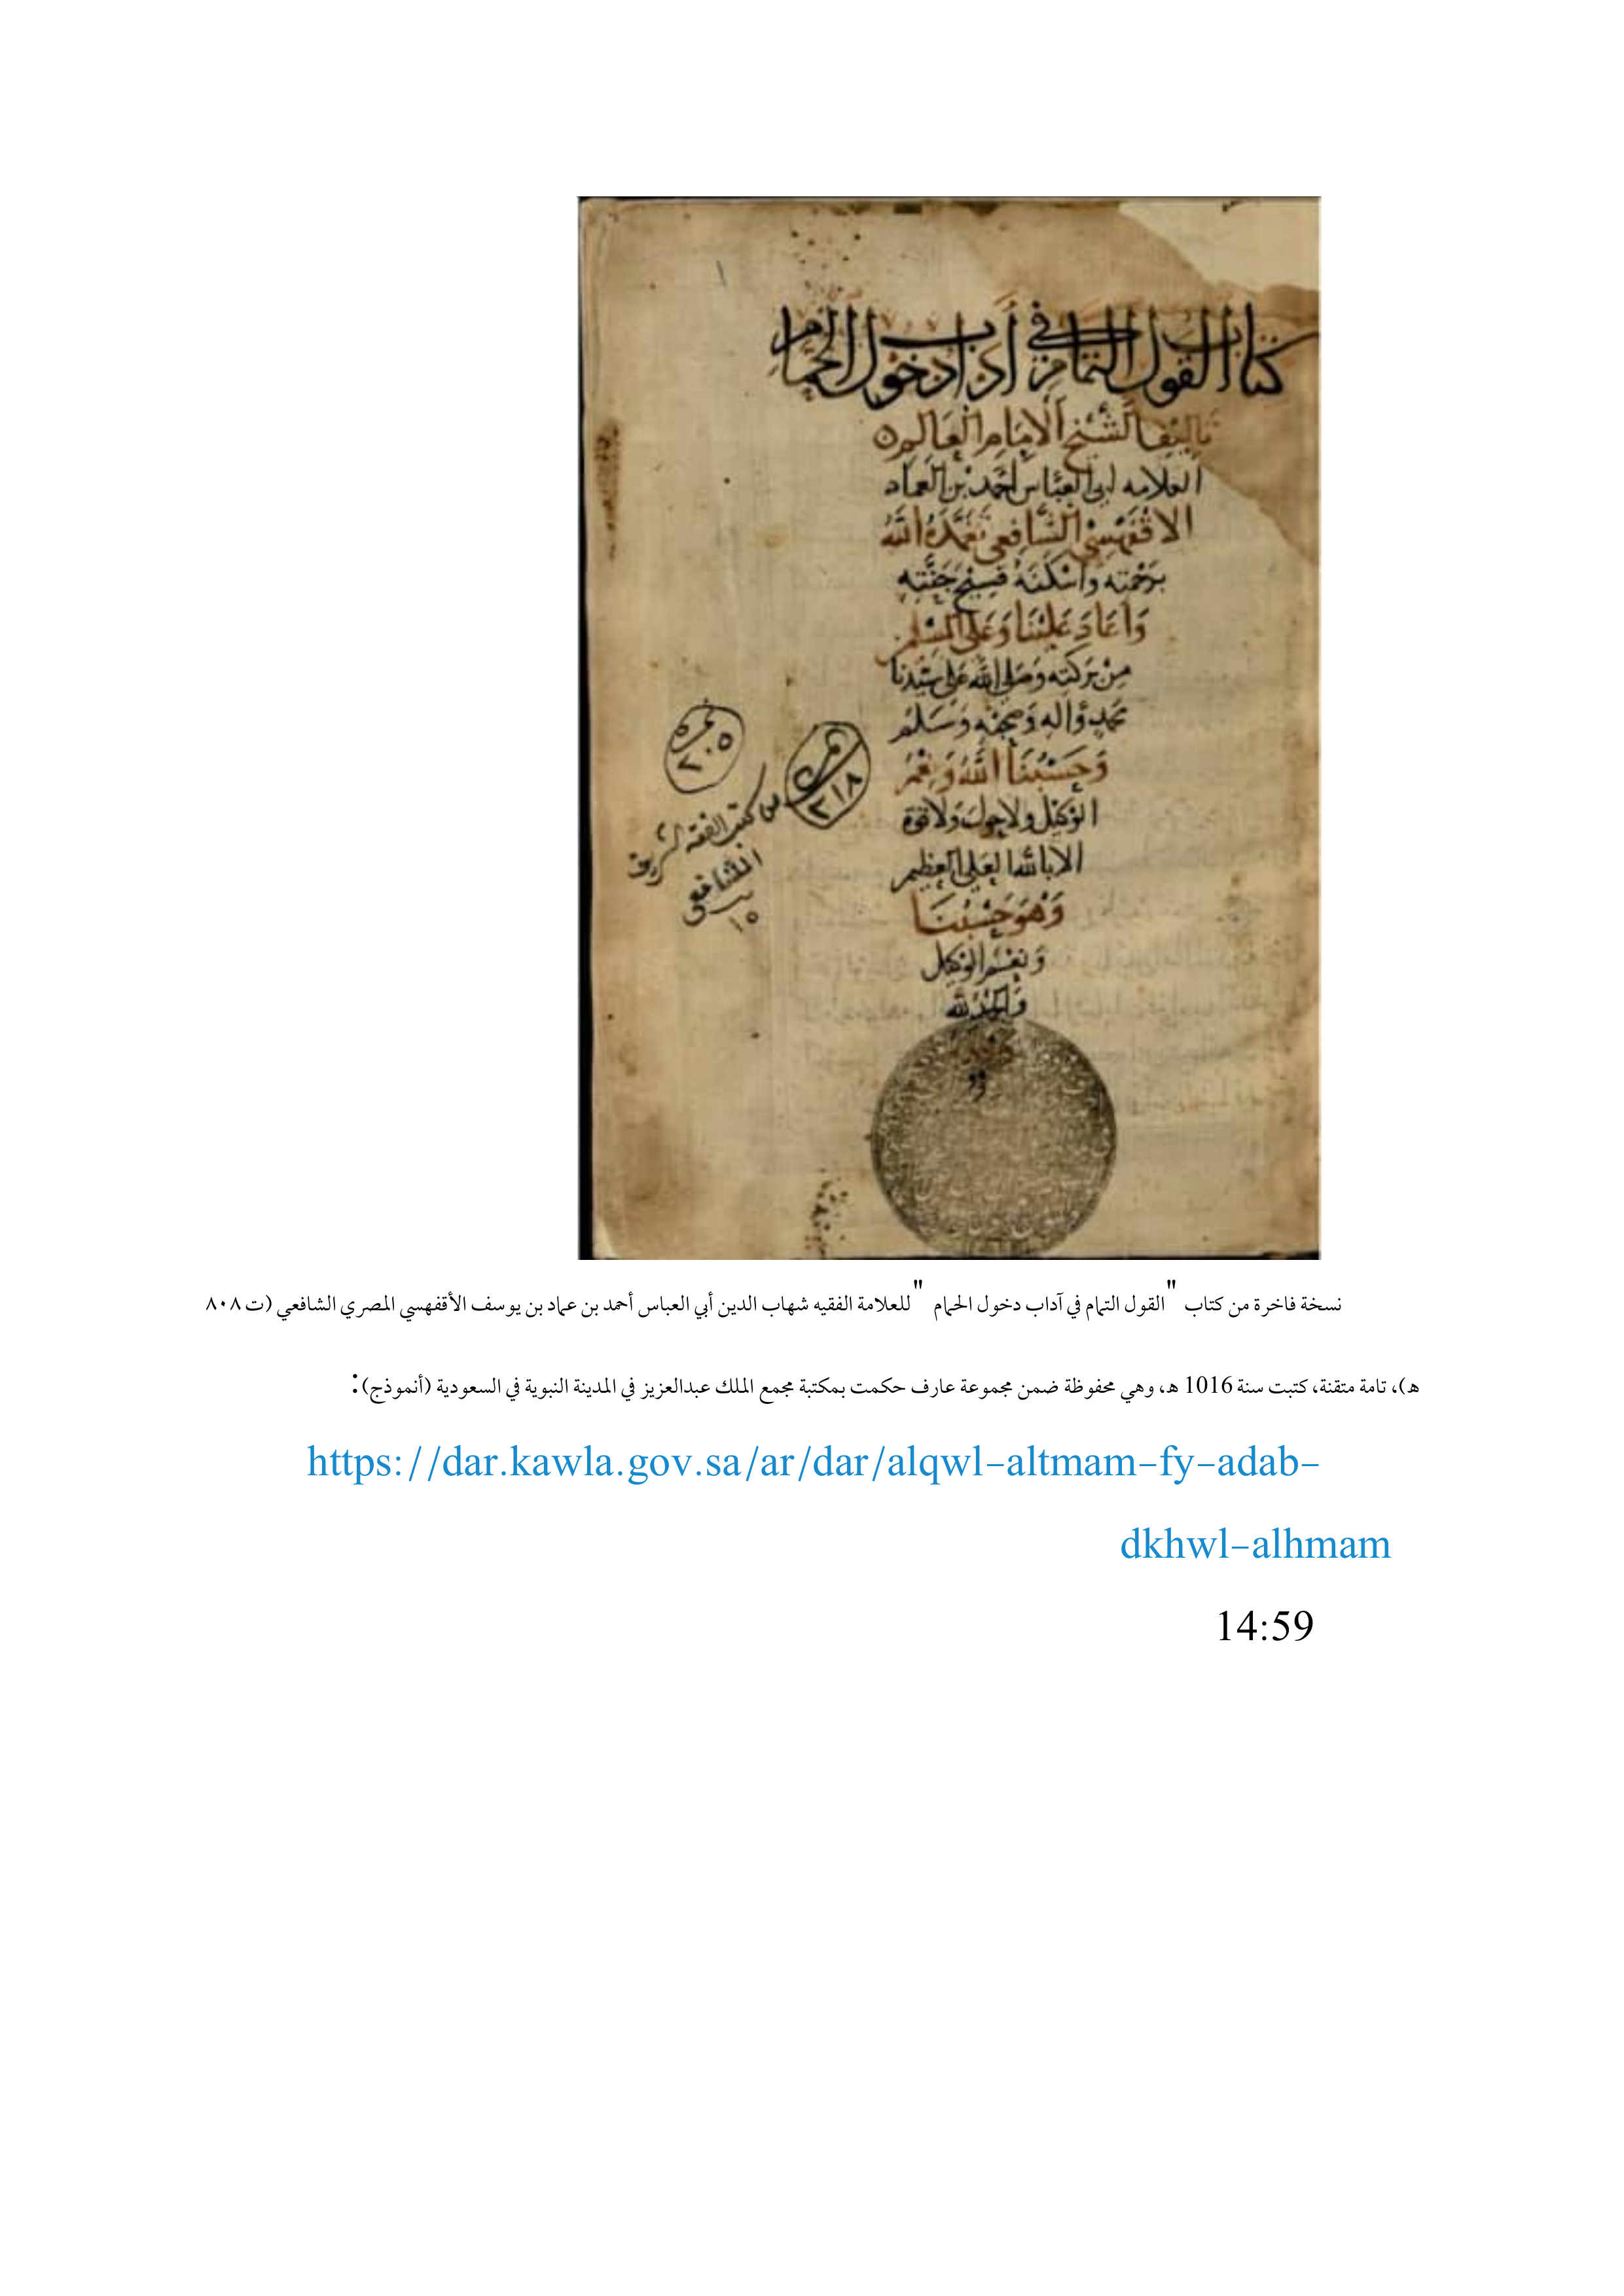 كتاب القول التمام في أداب دخول الحمام
تاليف الشيخ الامام العالم
العلامه ابي العباس احمد بن العماد
الاقفهسي الشافعي تغمده الله
برحمته واسكنه فسيح جنته
واعاد علينا وعلى المسلمين
من بركته وصلى الله على سيدنا
محمد واله وصحبه وسلم
وحسبنا الله ونعم
الوكيل ولا حول ولا قوة
الا بالله العلي العظيم
وهو حسبنا
ونعم الوكيل
والحمد لله
من كتب الفقه
الشافعي
١٥
نسخة فاخرة من كتاب "القول التمام في آداب دخول الحمام "للعلامة الفقيه شهاب الدين أبي العباس أحمد بن عماد بن يوسف الأقفهسي المصري الشافعي (ت ٨٠٨
هـ)، تامة متقنة، كتبت سنة 1016 هـ، وهي محفوظة ضمن مجموعة عارف حكمت بمكتبة مجمع الملك عبدالعزيز في المدينة النبوية في السعودية (أنموذج):
https://dar.kawla.gov.sa/ar/dar/alqwl-altmam-fy-adab-
dkhwl-alhmam
14:59